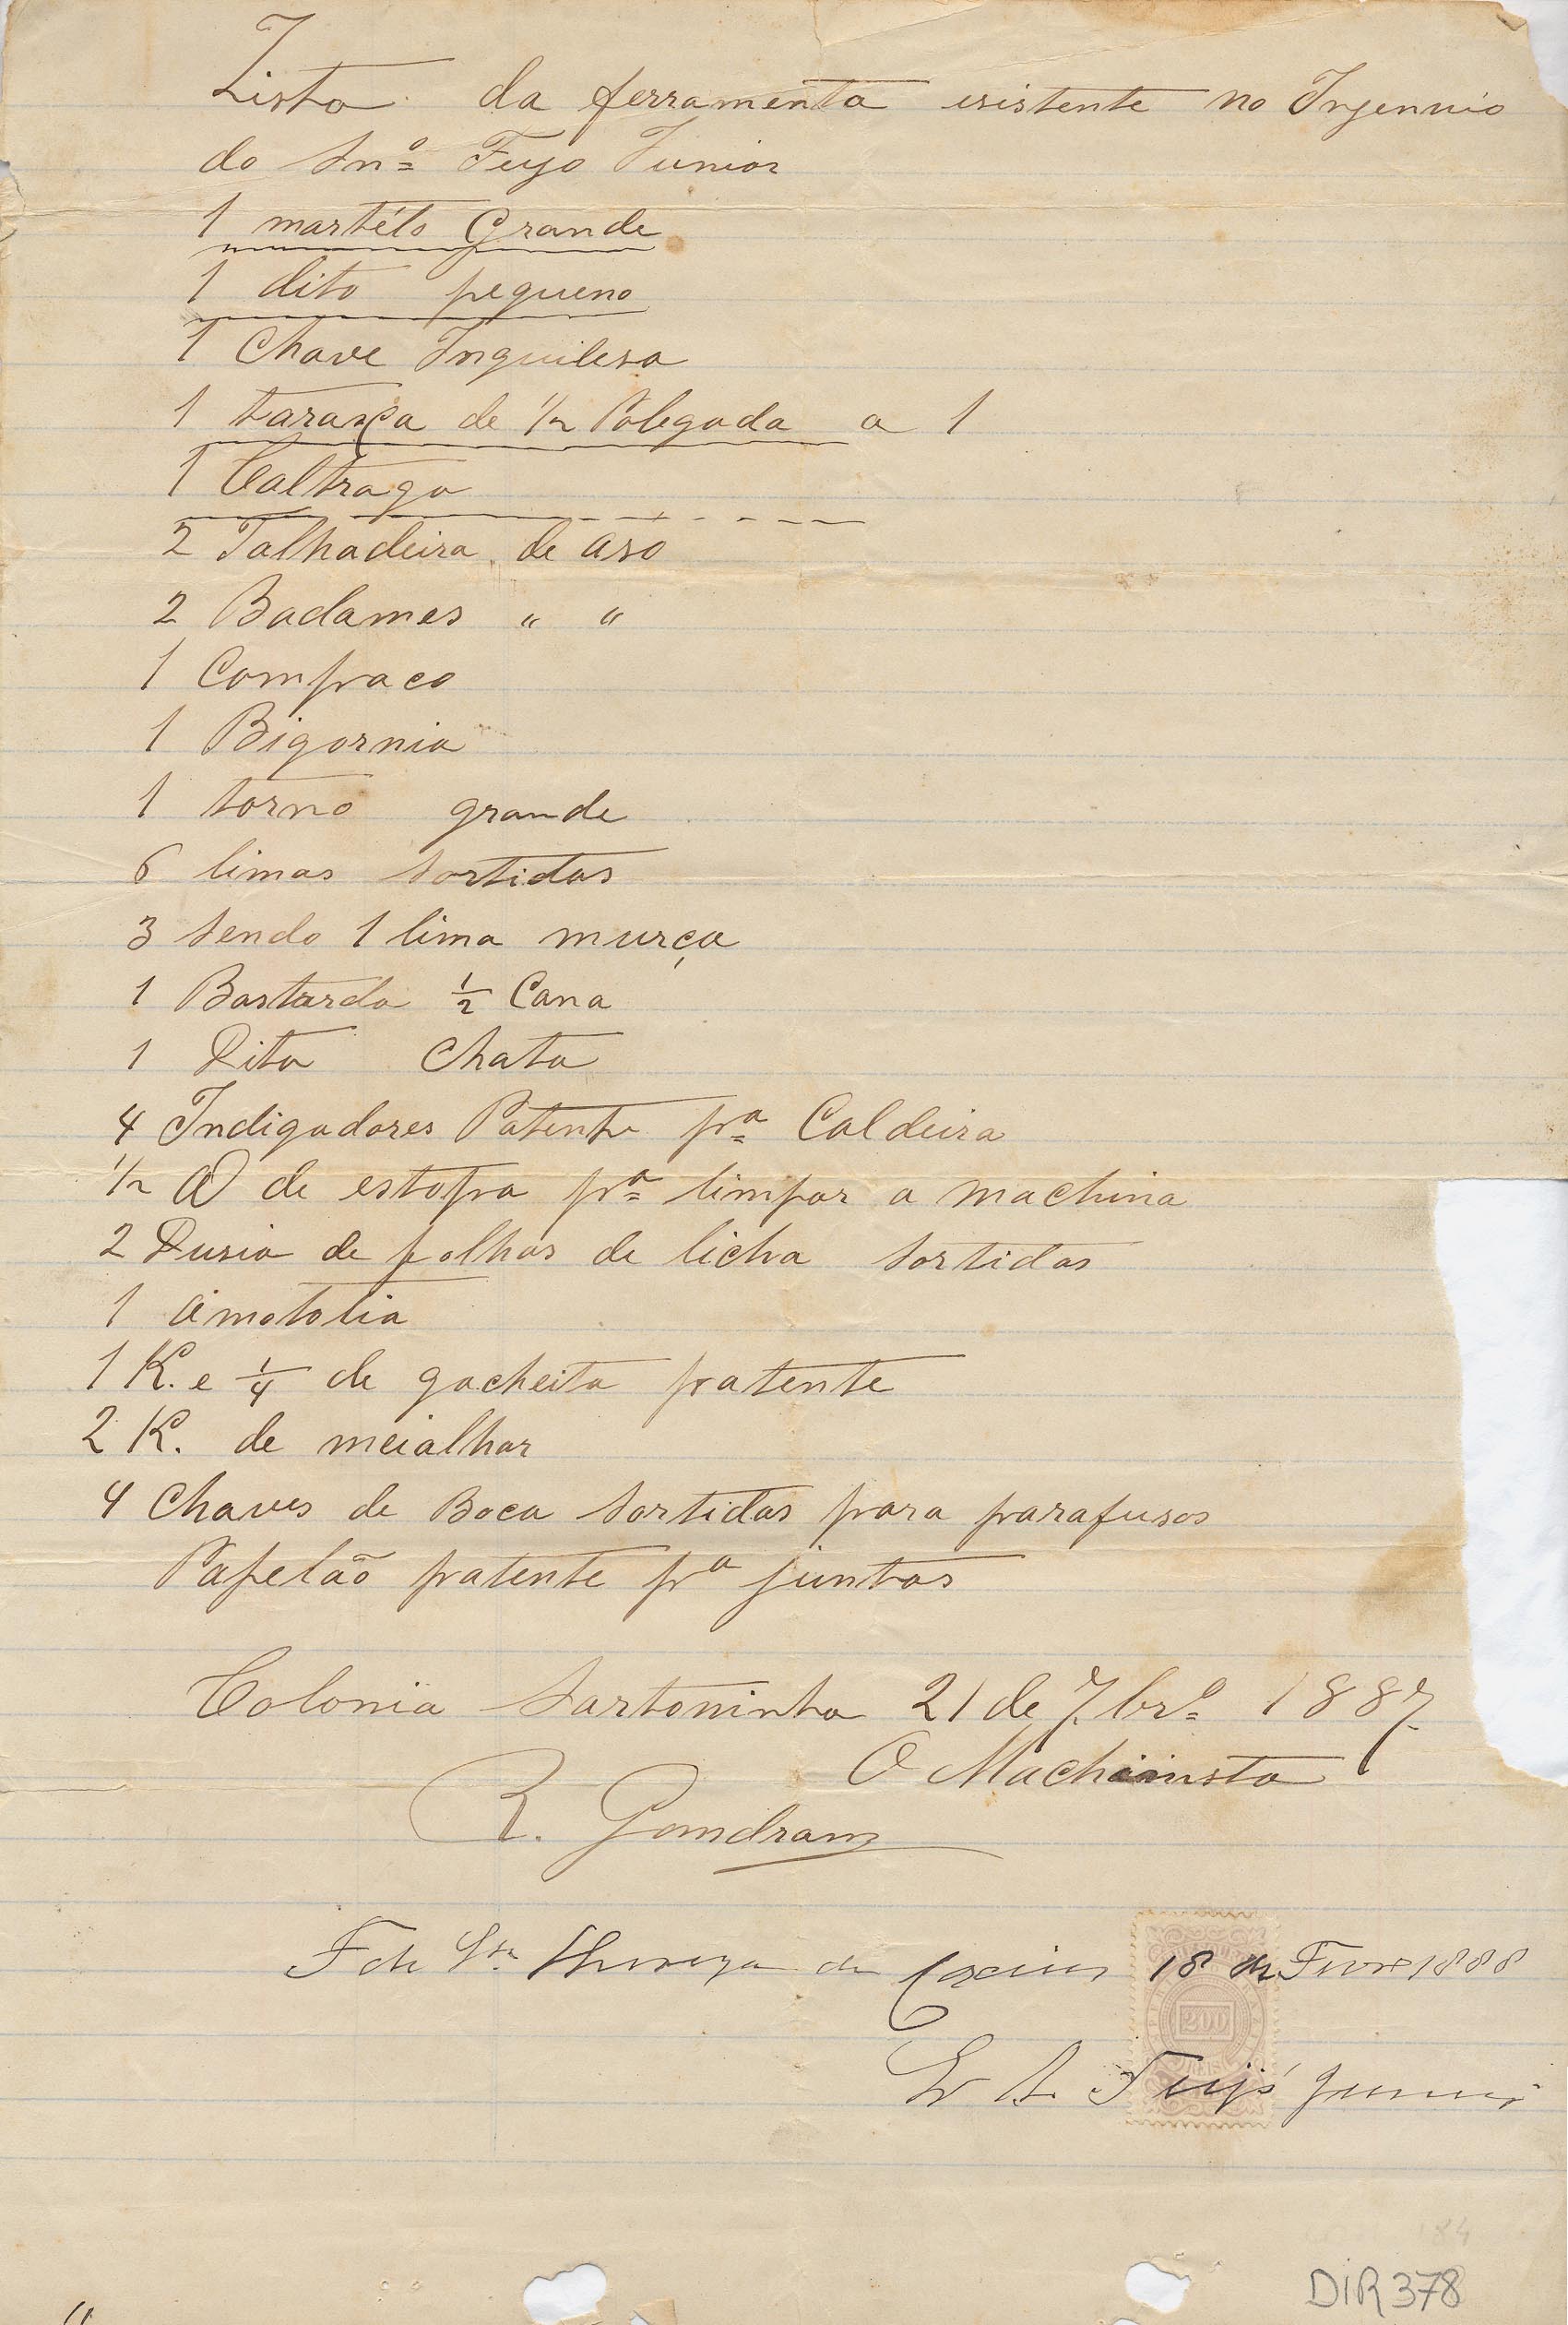 Lista da ferramenta esistente no Ingennio
do Snº Feyo Junior
1 martélo Grande
1 dito pequeno
1 Chave Inguilesa
1 taraxa de 1/2 Polegada a 1
1 Caltraga
2 Talhadeira de aso
2 Badames " "
1 Compraco
1 Bigornia
1 torno grande
6 limas sortidas
3 sendo 1 lima murça
1 Bastarda 1/2 Cana
1 Dita Chata
4 Indigadores Patente pª Caldeira
1/2 @ de estopa pª limpar a machina
2 Dusia de folhas de licha sortidas
1 amotolia
1 K. e 1/4 de gacheita patente
2 K. de meialhar
4 Chaves de Boca sortidas para parafusos
Papelão patente pª juntas
Colonia Santoninha 21 de 7.brº 1887
O Machinista
R. Gondram
F de Sta. Thereza de Caxias 18 de Fevro 1888
200
A. Feijó Junior
184
DIR378